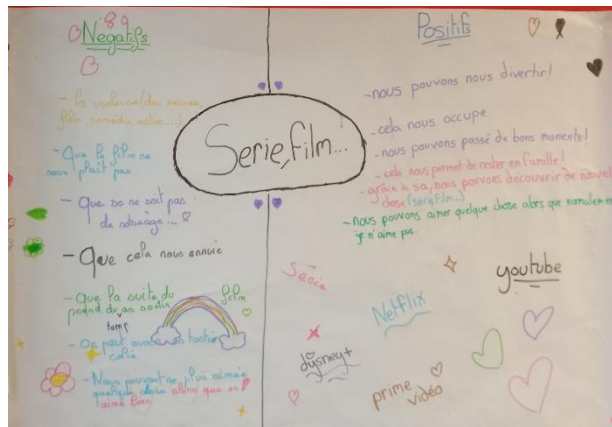 Negatifs
- la violence (
- Que le film ne
nous plaît pas
- Que se ne soit pas
de notre âge...
- Que cela nous ennuie
- Que la suite du film
prend du
temp
- On peut
- Nous pouvont ne plus
quelque chose alors que on
aimé bien
Serie, film...
Positifs
- nous pouvons nous divertir!
- cela nous occupe
- nous pouvons passé de bons moments!
- cela nous permet de rester en famille!
- grâce à sa, nous pouvons découvrir de nouvel
chose (serie, film...)
- nous pouvons aimer quelque chose alors que normalement
je n'aime pas.
Série
youtube
Netflix
dysney+
prime
vidéo